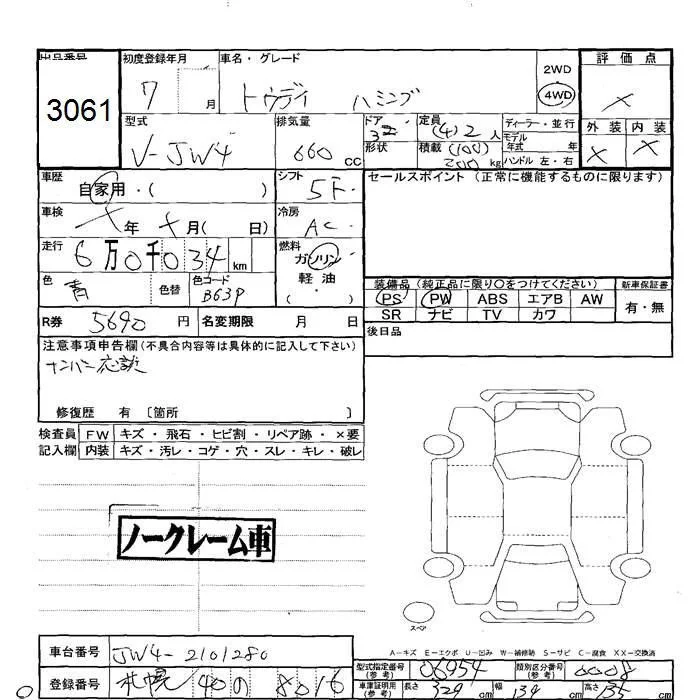 出品番号
3061
初度登録年月
7 月
車名・グレード
トゥディ ハミング
2WD
4WD
評価点
×
外装 内装
× ×
型式
V-JW4
排気量
660 cc
ドア
3
形状
定員
(4) 2 人
積載 (100)
200 kg
ディーラー・並行
モデル
年式 年
ハンドル 左・右
車歴
自家用・( )
シフト
5F.
セールスポイント (正常に機能するものに限ります)
車検
× 年 × 月( 日)
冷房
AC
走行
6万0千034 km
燃料
ガソリン
軽油
・( )
色
青
色替
色コード
B63P
装備品 (純正品に限り○をつけてください)
新車保証書
PS PW ABS エアB AW
SR ナビ TV カワ
有・無
R券 5690 円 名変期限 月 日
後日品
注意事項申告欄(不具合内容等は具体的に記入して下さい)
ナンバー応談
修復歴 有 〔箇所 〕
検査員 FW キズ・飛石・ヒビ割・リペア跡・×要
記入欄 内装 キズ・汚レ・コゲ・穴・スレ・キレ・破レ
ノークレーム車
スペア
A－キズ E－エクボ U－凹み W－補修跡 S－サビ C－腐食 XX－交換済
車台番号 JW4-2101280
登録番号 札幌 40 の 8016
型式指定番号
(参考)
06954
類別区分番号
(参考)
0008
車庫証明用
(参考)
長さ 329 cm 幅 139 cm 高さ 135 cm